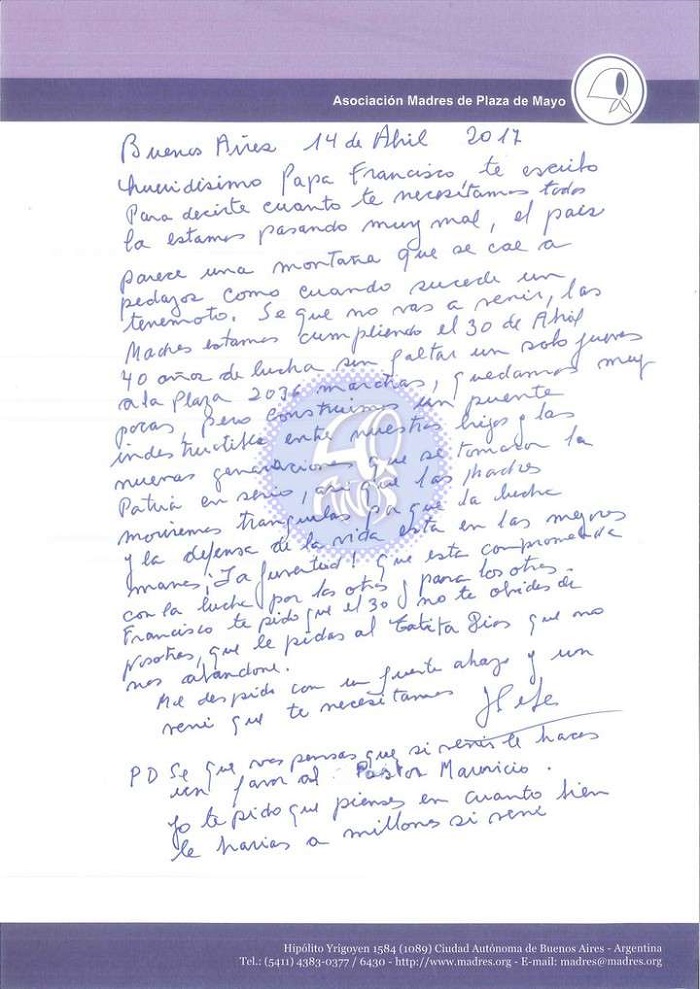 Asociación Madres de Plaza de Mayo
Buenos Aires 14 de Abril 2017
Queridisimo Papa Francisco te escribo
Para decirte cuanto te necesitamos todos
la estamos pasando muy mal, el pais
parece una montaña que se cae a
pedazos como cuando sucede un
terremoto. Se que no vas a venir, las
Madres estamos cumpliendo el 30 de Abril
40 años de lucha sin faltar un solo jueves
a la Plaza 2036 marchas, quedamos muy
pocas, pero construimos un puente
indestructible entre nuestros hijos y las
nuevas generaciones que se tomaron la
Patria en serio, asi que las Madres
moriremos tranquilas porque la lucha
y la defensa de la vida esta en las mejores
manos ¡La juventud! que esta comprometida
con la lucha por los otros y para los otros.
Francisco te pido que el 30 no te olvides de
Nosotras, que le pidas al Tatita Dios que no
nos abandone.
Me despido con un fuerte abrazo y un
veni que te necesitamos
PD Se que vas pensas que si venis le haces
un favor al Pastor Mauricio.
yo te pido que pienses en cuanto bien
le harias a millones si veni
40
AÑOS
Hipólito Yrigoyen 1584 (1089) Ciudad Autónoma de Buenos Aires - Argentina
Tel.: (5411) 4383-0377 / 6430 - http://www.madres.org - E-mail: madres@madres.org